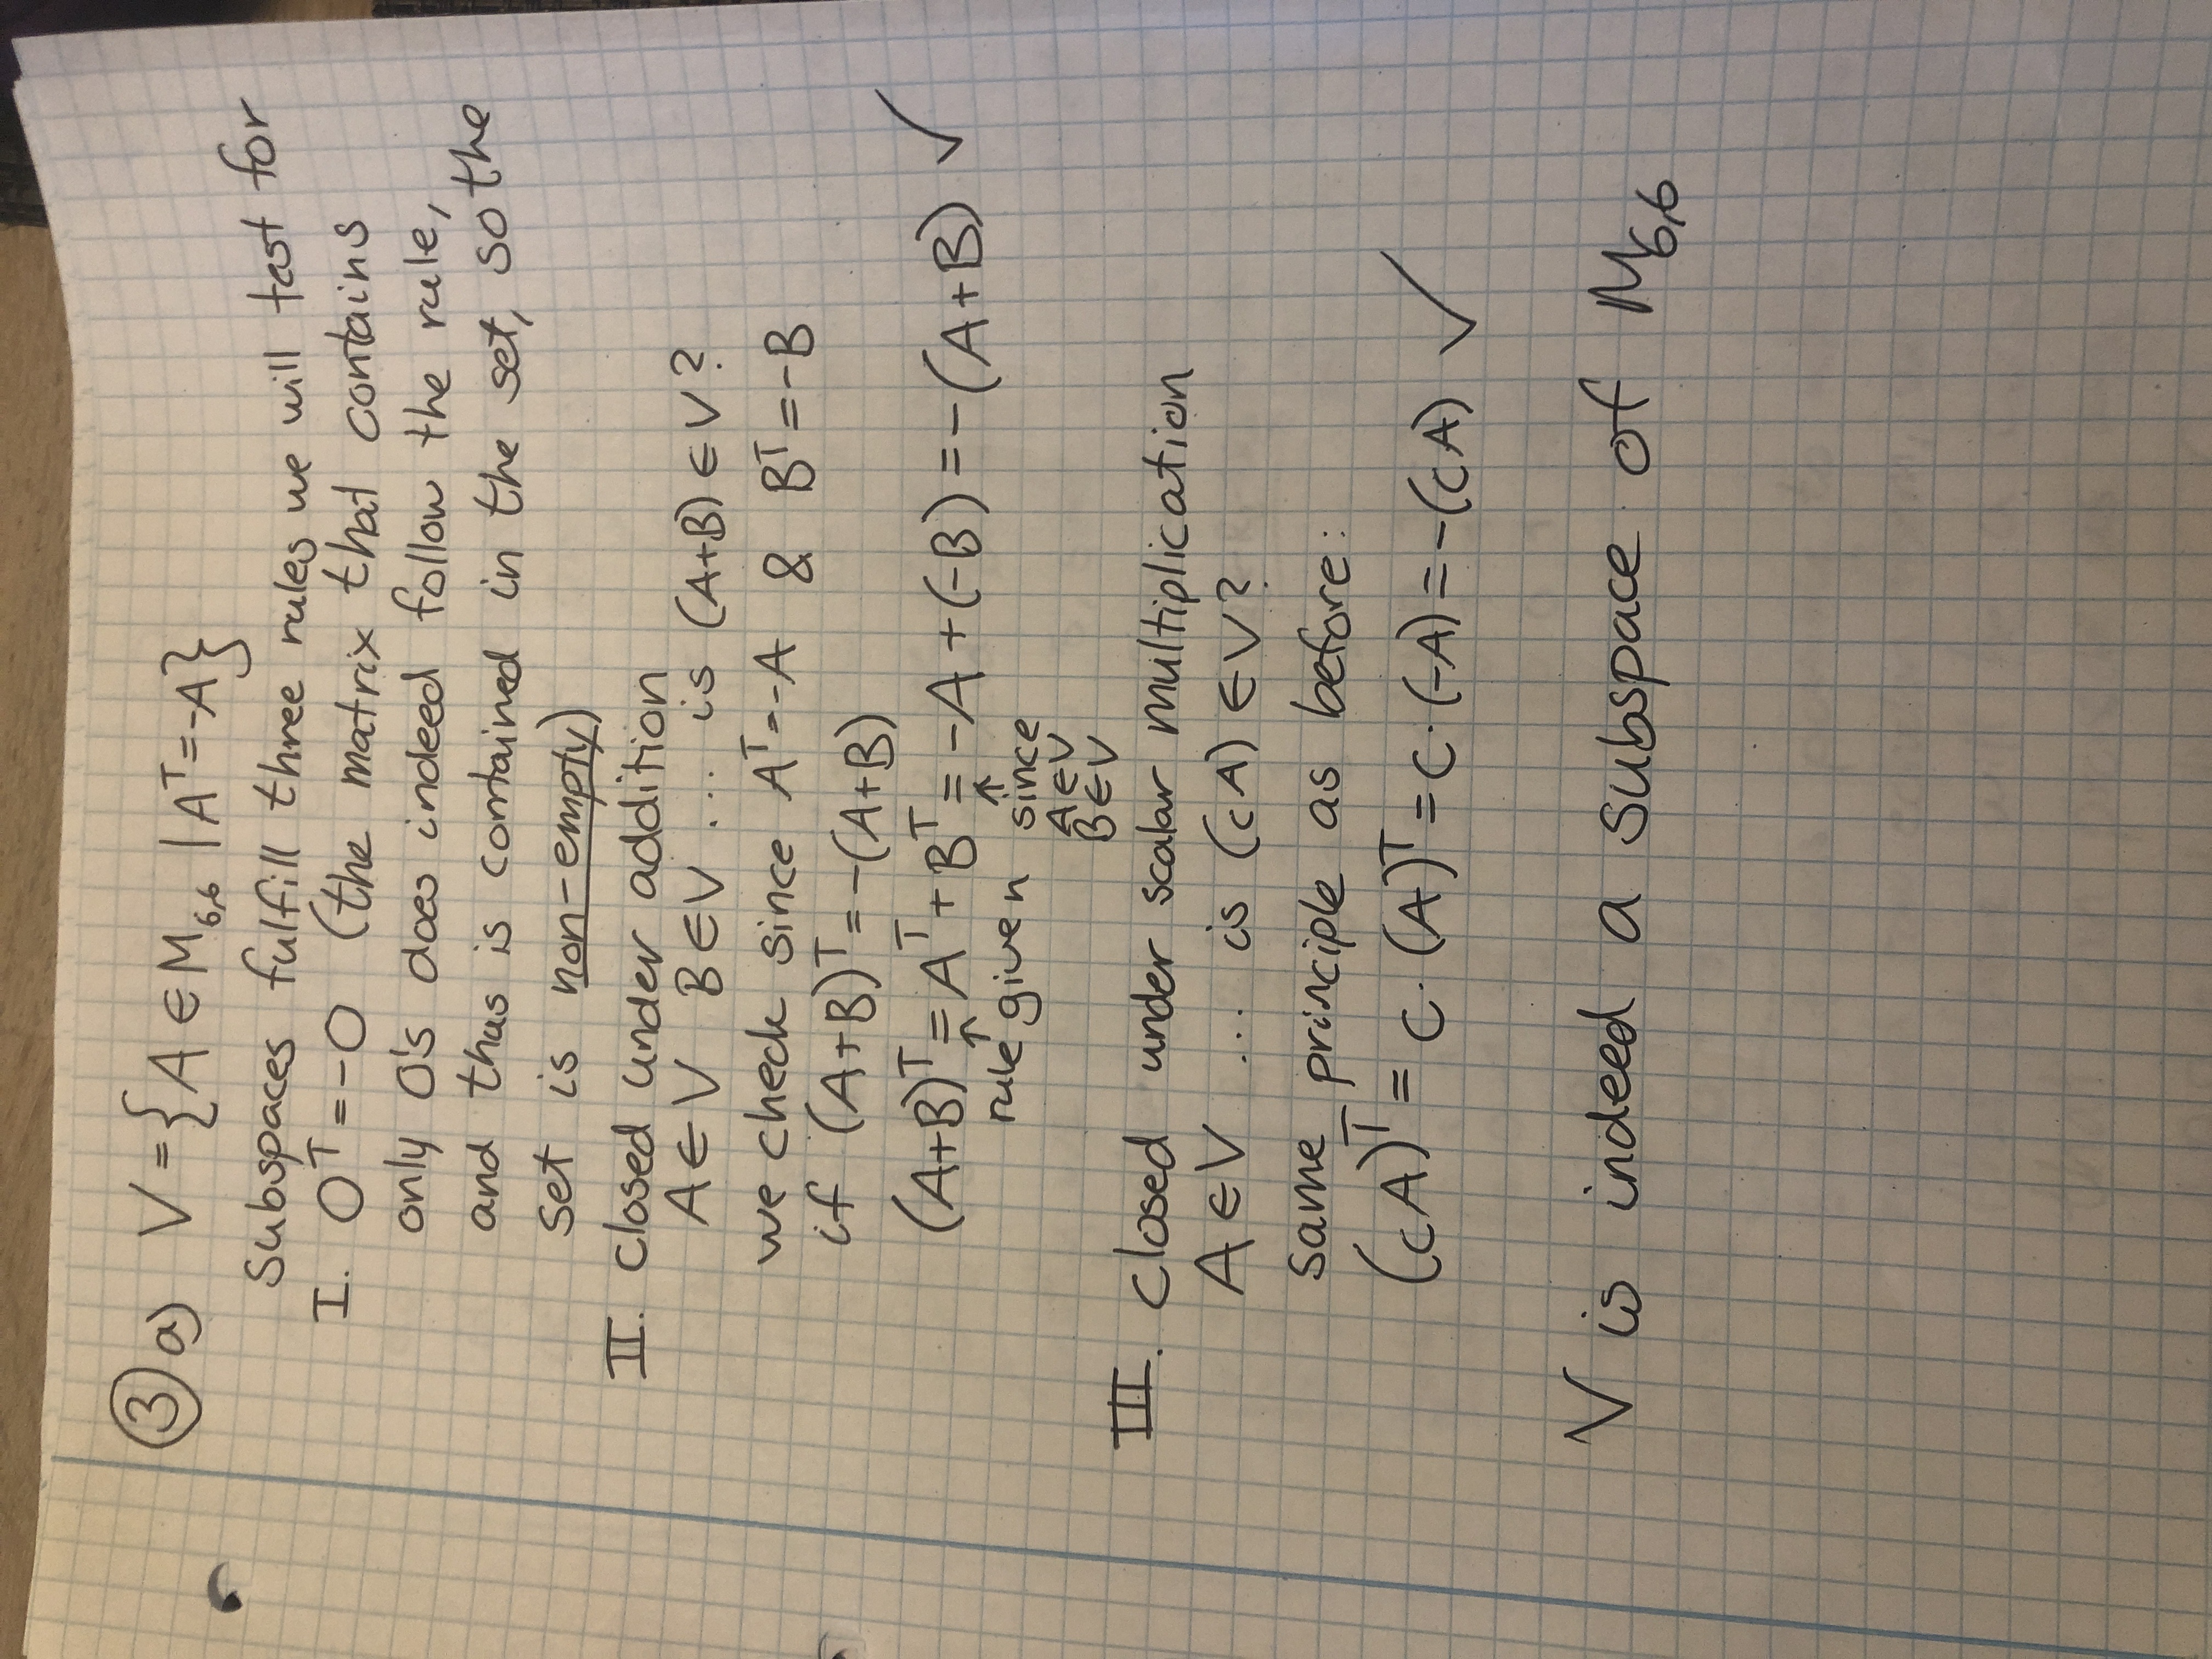 ③ a) V = {A ∈ M₆,₆ | Aᵀ = -A}
Subspaces fulfill three rules we will test for
I. Oᵀ = -O (the matrix that contains
only 0's does indeed follow the rule,
and thus is contained in the set, so the
set is non-empty)
II. Closed under addition
A ∈ V B ∈ V ... is (A+B) ∈ V?
we check since Aᵀ = -A & Bᵀ = -B
if (A+B)ᵀ = -(A+B)
(A+B)ᵀ = Aᵀ + Bᵀ = -A + (-B) = -(A+B) ✓
↑ ↑
rule given since
A ∈ V
B ∈ V
III. Closed under scalar multiplication
A ∈ V ... is (cA) ∈ V?
same principle as before:
(cA)ᵀ = c · (A)ᵀ = c · (-A) = -(cA) ✓
V is indeed a subspace of M₆,₆